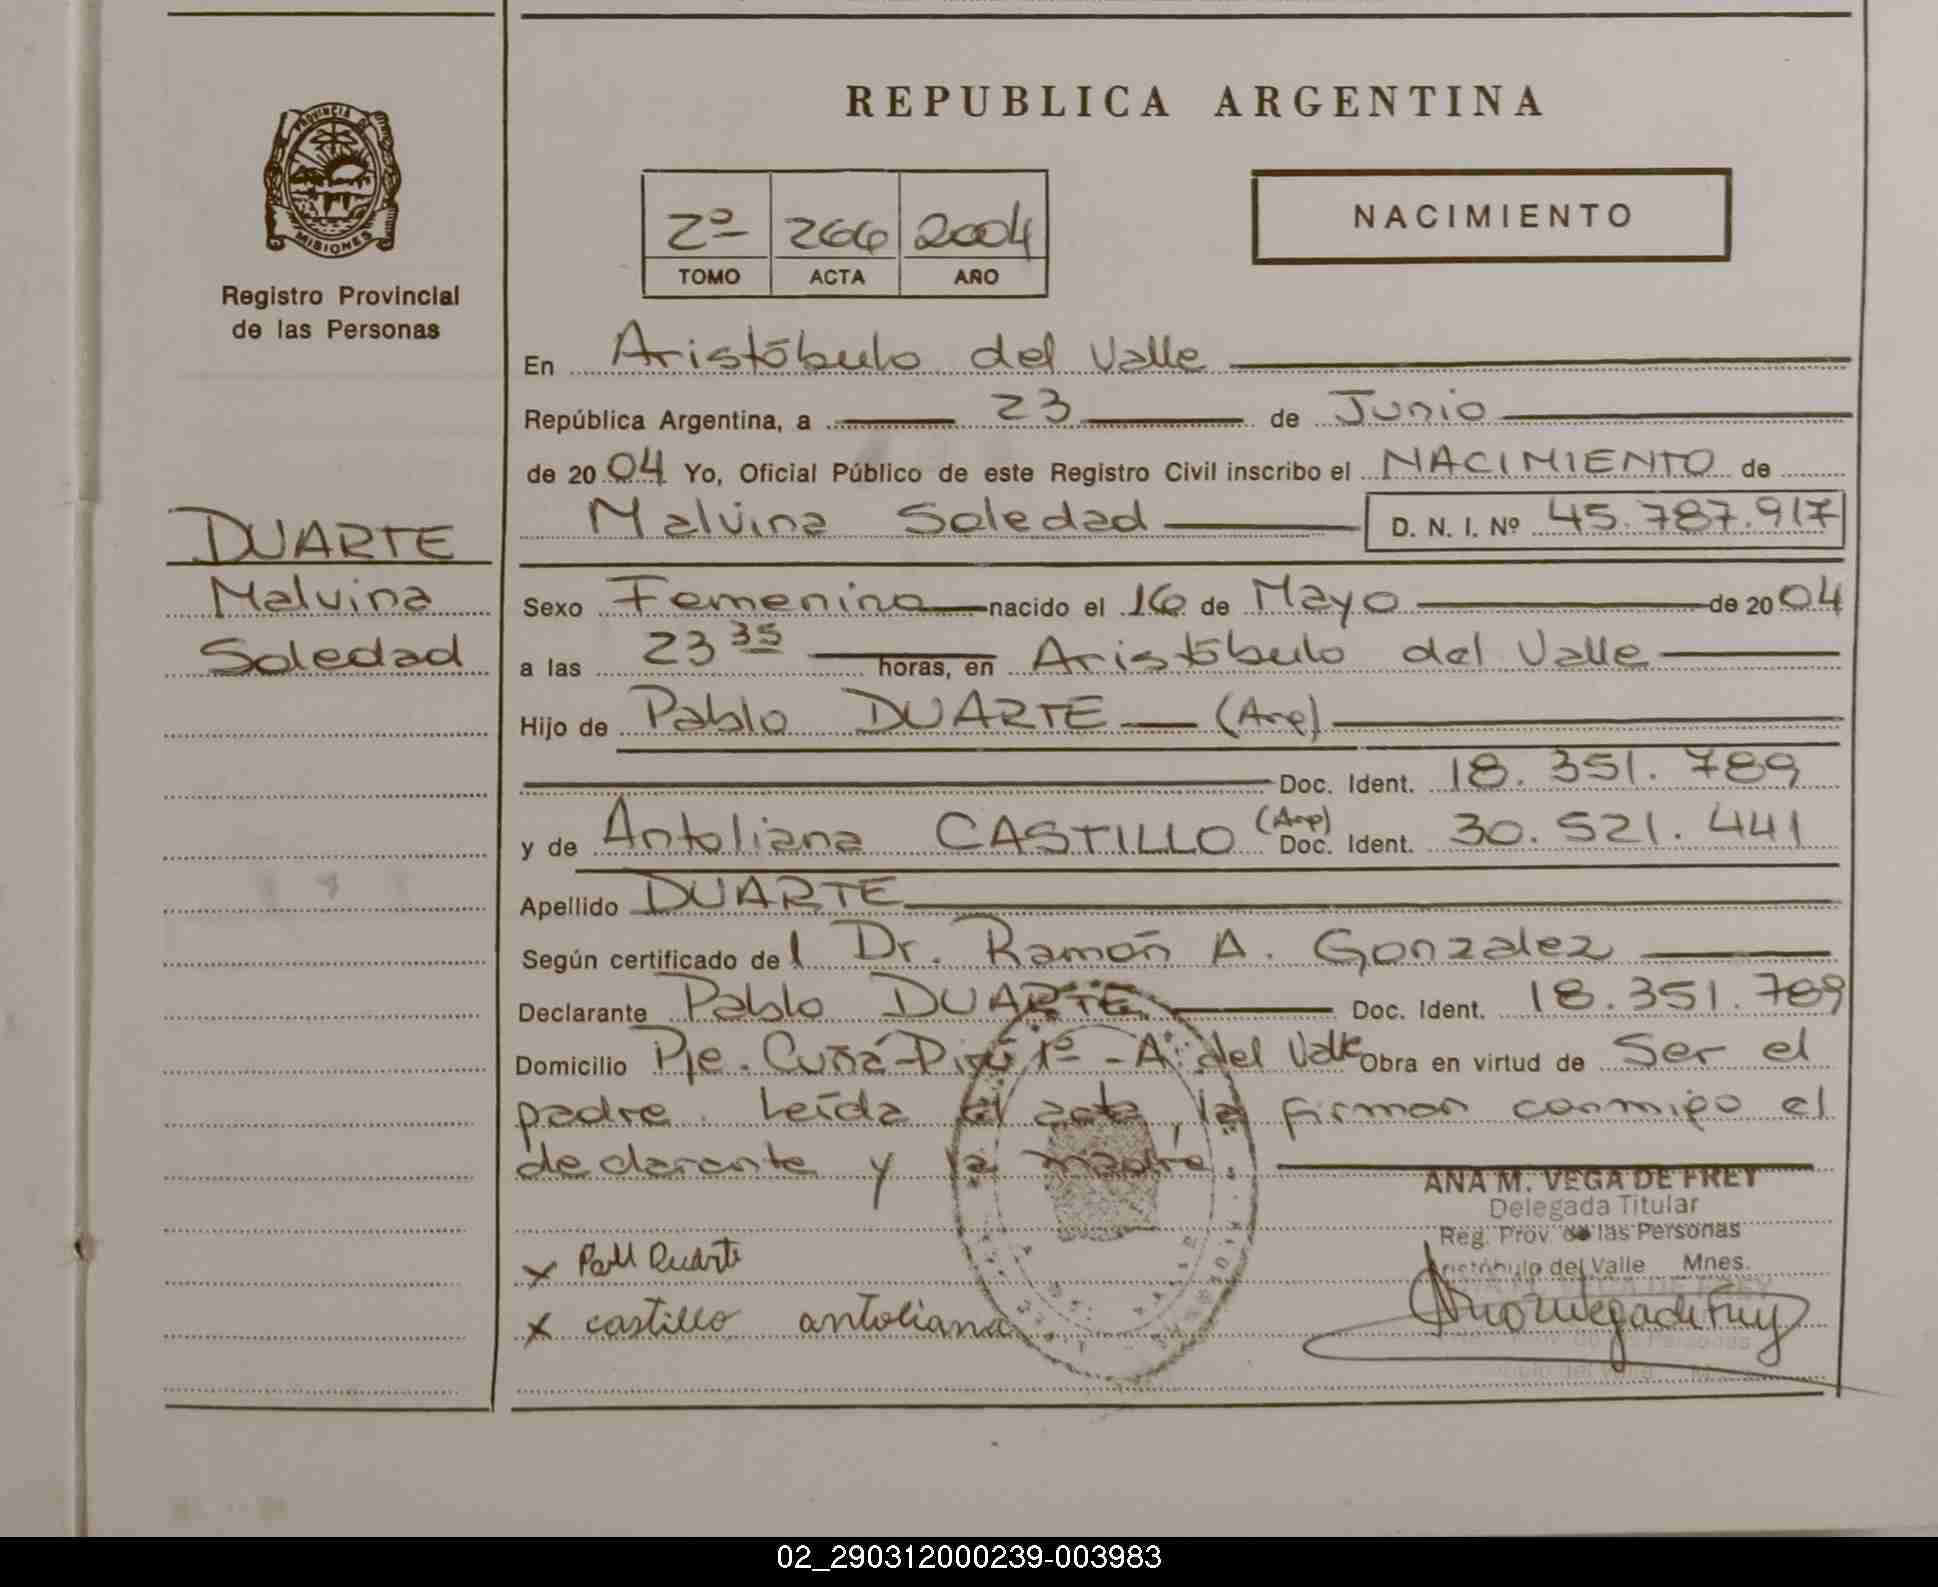 REPUBLICA ARGENTINA
PROVINCIA DE
MISIONES
Registro Provincial
de las Personas
2º 266 2004
TOMO ACTA AÑO
NACIMIENTO
En Aristóbulo del Valle
República Argentina, a 23 de Junio
de 2004 Yo, Oficial Público de este Registro Civil inscribo el NACIMIENTO de
Malvina Soledad D. N. I. Nº 45.787.917
DUARTE
Malvina
Soledad
Sexo Femenino nacido el 16 de Mayo de 2004
a las 23 35 horas, en Aristóbulo del Valle
Hijo de Pablo DUARTE (Arg)
Doc. Ident. 18.351.789
y de Antoliana CASTILLO (Arg) Doc. Ident. 30.521.441
Apellido DUARTE
Según certificado del Dr. Ramón A. Gonzalez
Declarante Pablo DUARTE Doc. Ident. 18.351.789
Domicilio Pje. Cuñá-Pirú 1º - A. del Valle Obra en virtud de Ser el
padre. Leída el acta, la firman conmigo el
declarante y la madre.
ANA M. VEGA DE FREY
Delegada Titular
Reg. Prov. de las Personas
Aristóbulo del Valle Mnes.
x Duarte
x castillo antoliana
02_290312000239-003983